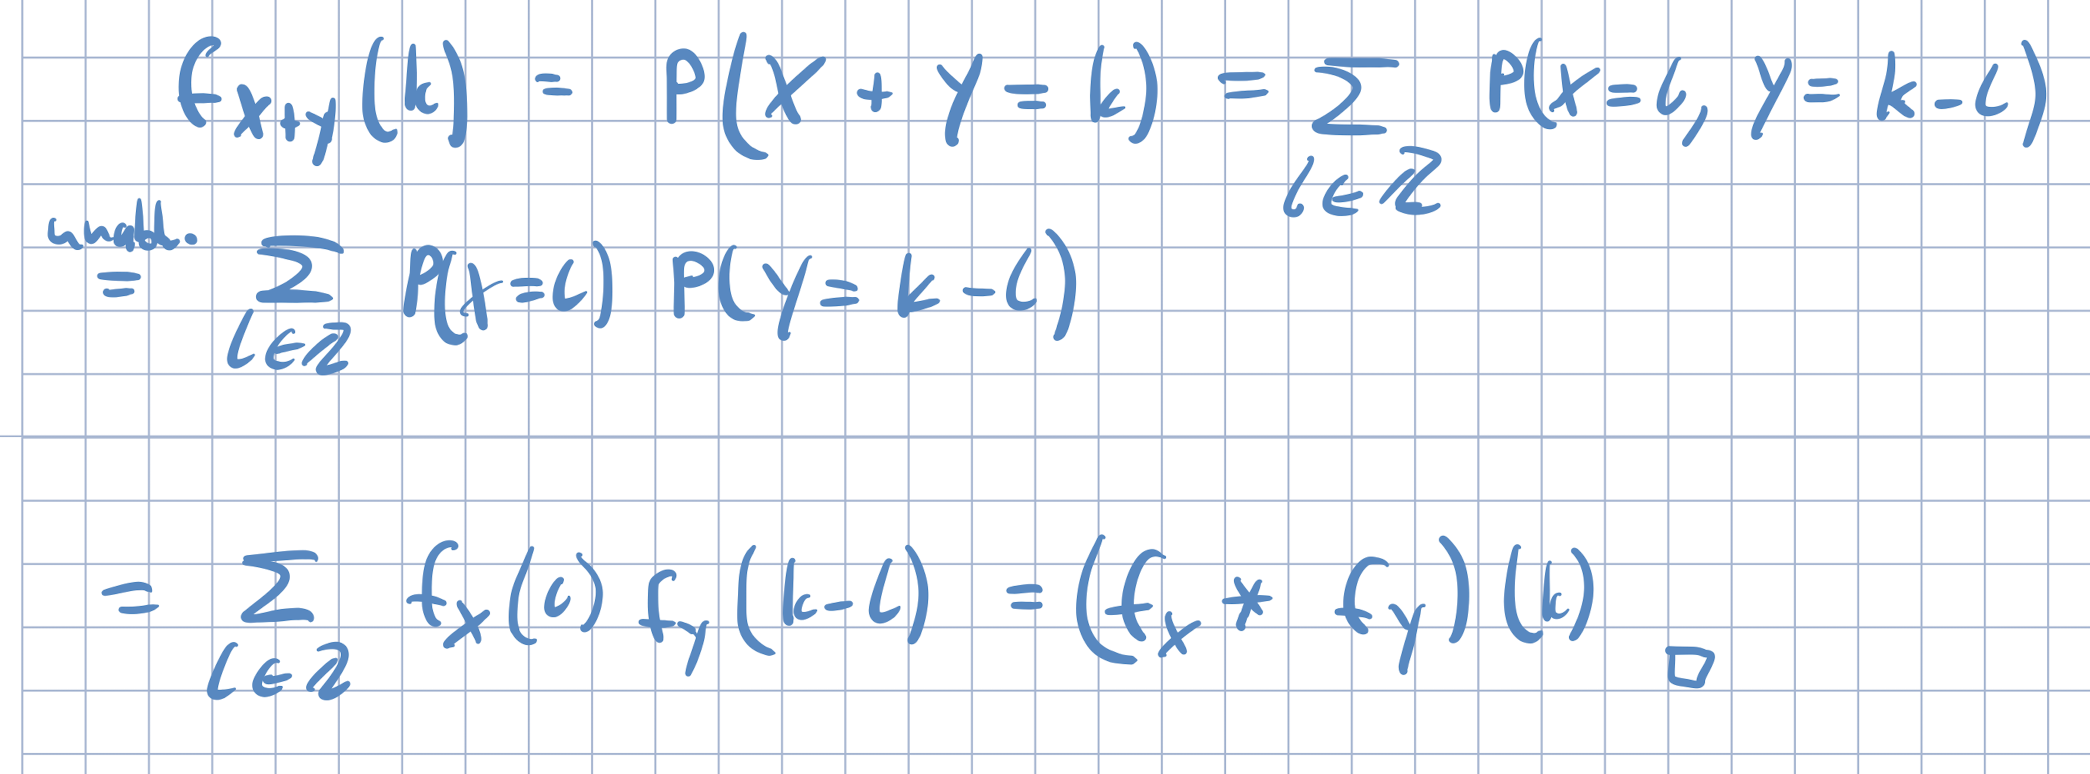 f_{X+Y}(k) = P(X + Y = k) = ∑_{l∈ℤ} P(X = l, Y = k - l)
unabh.
= ∑_{l∈ℤ} P(X = l) P(Y = k - l)
= ∑_{l∈ℤ} f_X(l) f_Y(k - l) = (f_X * f_Y)(k) □